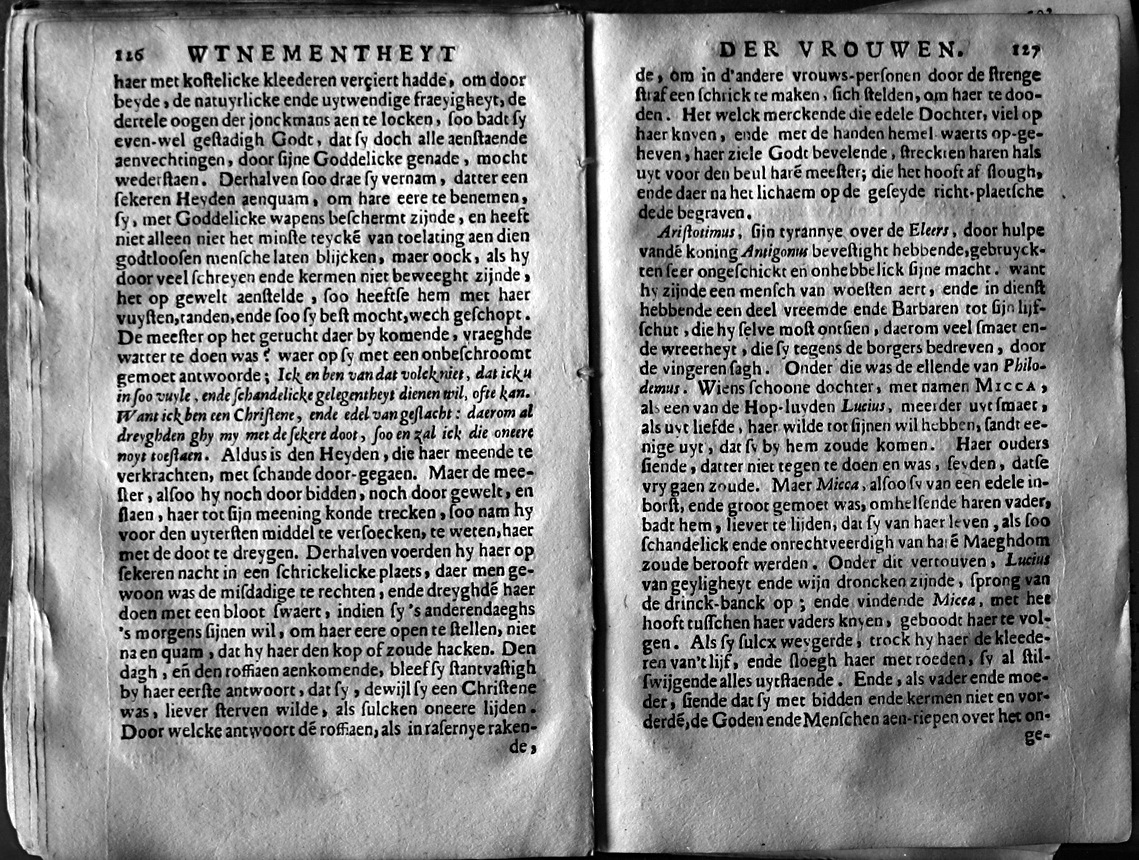 126 WTNEMENTHEYT
haer met koſtelicke kleederen verçiert hadde, om door
beyde, de natuyrlicke ende uytwendige fraeyigheyt, de
dertele oogen der jonckmans aen te locken, ſoo badt ſy
even-wel geſtadigh Godt, dat ſy doch alle aenſtaende
aenvechtingen, door ſijne Goddelicke genade, mocht
wederſtaen. Derhalven ſoo drae ſy vernam, datter een
ſekeren Heyden aenquam, om hare eere te benemen,
ſy, met Goddelicke wapens beſchermt zijnde, en heeft
niet alleen niet het minſte teyckē van toelating aen dien
godtlooſen menſche laten blijcken, maer oock, als hy
door veel ſchreyen ende kermen niet beweeght zijnde,
het op gewelt aenſtelde, ſoo heeftſe hem met haer
vuyſten, tanden, ende ſoo ſy beſt mocht, wech geſchopt.
De meeſter op het gerucht daer by komende, vraeghde
watter te doen was? waer op ſy met een onbeſchroomt
gemoet antwoorde; Ick en ben van dat volck niet, dat ick u
in ſoo vuyle, ende ſchandelicke gelegentheyt dienen wil, ofte kan.
Want ick ben een Chriſtene, ende edel van geſlacht: daerom al
dreyghden ghy my met de ſekere doot, ſoo en zal ick die oneere
noyt toeſtaen. Aldus is den Heyden, die haer meende te
verkrachten, met ſchande door-gegaen. Maer de mee-
ſter, alſoo hy noch door bidden, noch door gewelt, en
ſlaen, haer tot ſijn meening konde trecken, ſoo nam hy
voor den uyterſten middel te verſoecken, te weten, haer
met de doot te dreygen. Derhalven voerden hy haer op
ſekeren nacht in een ſchrickelicke plaets, daer men ge-
woon was de miſdadige te rechten, ende dreyghdē haer
doen met een bloot ſwaert, indien ſy 's anderendaeghs
's morgens ſijnen wil, om haer eere open te ſtellen, niet
na en quam, dat hy haer den kop of zoude hacken. Den
dagh, en̄ den roffiaen aenkomende, bleef ſy ſtantvaſtigh
by haer eerſte antwoort, dat ſy, dewijl ſy een Chriſtene
was, liever ſterven wilde, als ſulcken oneere lijden.
Door welcke antwoort dē roffiaen, als in raſernye raken-
de,
DER VROUWEN. 127
de, om in d'andere vrouws-perſonen door de ſtrenge
ſtraf een ſchrick te maken, ſich ſtelden, om haer te doo-
den. Het welck merckende die edele Dochter, viel op
haer knyen, ende met de handen hemel waerts op-ge-
heven, haer ziele Godt bevelende, ſtreckten haren hals
uyt voor den beul harē meeſter; die het hooft af ſlough,
ende daer na het lichaem op de geſeyde richt-plaetſche
dede begraven.
Ariſtotimus, ſijn tyrannye over de Eleers, door hulpe
vandē koning Antigonus beveſtight hebbende, gebruyck-
ten ſeer ongeſchickt en onhebbelick ſijne macht. want
hy zijnde een menſch van woeſten aert, ende in dienſt
hebbende een deel vreemde ende Barbaren tot ſijn lijf-
ſchut, die hy ſelve moſt ontſien, daerom veel ſmaet en-
de wreetheyt, die ſy tegens de borgers bedreven, door
de vingeren ſagh. Onder die was de ellende van Philo-
demus. Wiens ſchoone dochter, met namen MICCA,
als een van de Hop-luyden Lucius, meerder uyt ſmaet,
als uyt liefde, haer wilde tot ſijnen wil hebben, ſandt ee-
nige uyt, dat ſy by hem zoude komen. Haer ouders
ſiende, datter niet tegen te doen en was, ſeyden, datſe
vry gaen zoude. Maer Micca, alſoo ſy van een edele in-
borſt, ende groot gemoet was, omhelſende haren vader,
badt hem, liever te lijden, dat ſy van haer leven, als ſoo
ſchandelick ende onrechtveerdigh van harē Maeghdom
zoude berooft werden. Onder dit vertouven, Lucius
van geyligheyt ende wijn droncken zijnde, ſprong van
de drinck-banck op; ende vindende Micca, met het
hooft tuſſchen haer vaders knyen, geboodt haer te vol-
gen. Als ſy ſulcx weygerde, trock hy haer de kleede-
ren van't lijf, ende ſloegh haer met roeden, ſy al ſtil-
ſwijgende alles uytſtaende. Ende, als vader ende moe-
der, ſiende dat ſy met bidden ende kermen niet en vor-
derdē, de Goden ende Menſchen aen-riepen over het on-
ge-